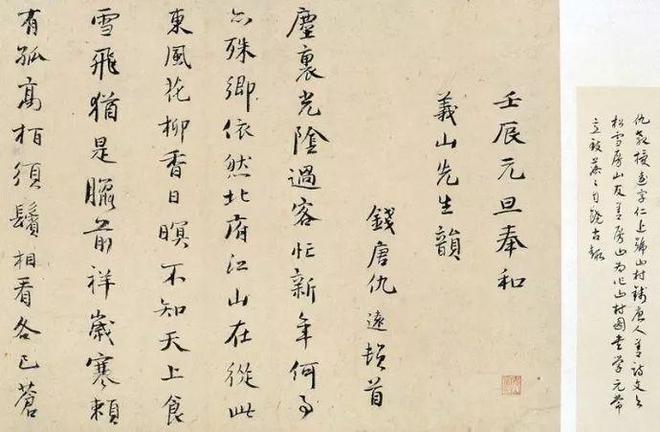 仇教授遠字仁近號山村錢唐人善詩文与
松雪房山友善房山為作山村圖書學元常
自饒古趣
壬辰元旦奉和
義山先生韻
錢唐仇遠頓首
塵裏光陰過客忙新年何
殊鄉依然北府江山在從此
東風花柳香日暝不知天上食
雪飛猶是臘前祥歲寒賴
有孤高柏須鬢相看各已蒼